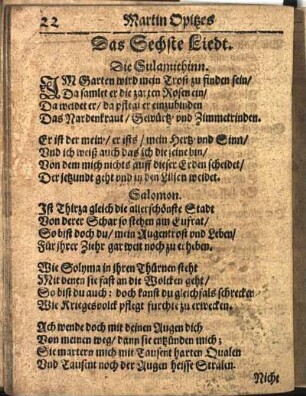 22
Martin Opitzes
Das Sechste Liedt.
Die Sulamithinn.
IM Garten wird mein Trost zu finden sein/
Da samlet er die zarten Rosen ein/
Da weidet er/ da pflegt er einzubinden
Das Nardenkraut/ Gewürtz und Zimmetrinden.
Er ist der mein/ er ists/ mein Hertz und Sinn/
Und ich weiß auch das ich die seine bin/
Von dem mich nichts auff dieser Erden scheidet/
Der jetzundt geht und in den Lilien weidet.
Salomon.
Ist Thirza gleich die allerschönste Stadt
Von derer Schar so stehen am Eufrat/
So bist doch du/ mein Augentrost und Leben/
Für ihrer Ziehr gar weit noch zu erheben.
Wie Solyma in ihren Thürnen steht
Mit denen sie fast an die Wolcken geht/
So bist du auch: doch kanst du gleichfals schrecken
Wie Kriegesvolck pflegt furcht zu erwecken.
Ach wende doch mit deinen Augen dich
Von meinen weg/ dann sie entzünden mich;
Sie martern mich mit Tausent harten Qualen
Und Tausent noch der Augen heisse Stralen.
Nicht